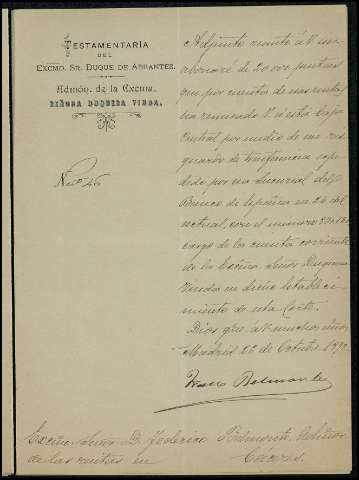 TESTAMENTARÍA
DEL
EXCMO. SR. DUQUE DE ABRANTES.
Admón. de la Excma.
SEÑORA DUQUESA VIUDA.
Núm. 46
Adjunto remito á V. un
abonaré de 20.000 pesetas
que por cuenta de esas rentas
ha remesado V. á esta Caja
Central por medio de un res-
guardo de transferencia expe-
dido por esa Sucursal del
Banco de España en 26 del
actual, con el número
cargo de la cuenta corriente
de la Excma. Señora Duquesa
Viuda en dicho Estableci-
miento de esta Corte.
Dios gue. á V. muchos años
Madrid 28 de Octubre 189
Franco Belmonte
Señor D. Federico Belmonte, Admor.
de las rentas en Cáceres.